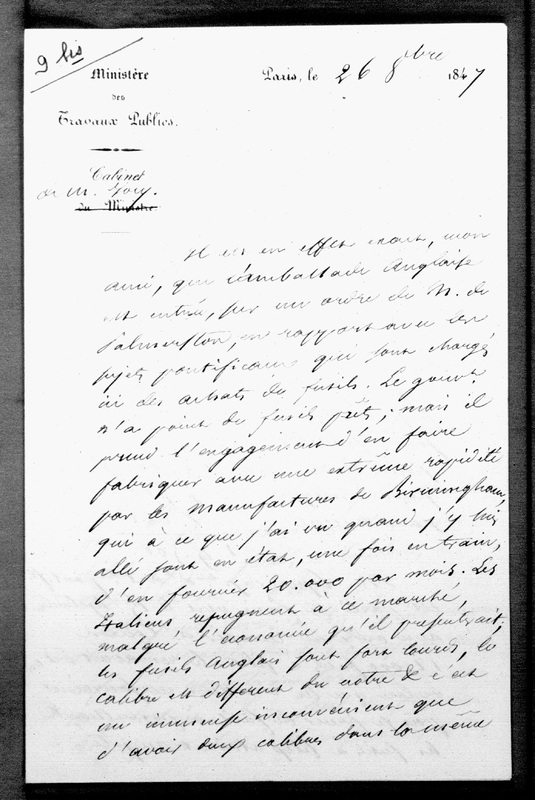 9 bis
Ministère
des
Travaux Publics.
Cabinet
de M. Gory.
du Ministre
Paris, le 26 8bre 1847
Il est en effet exact, mon
ami, que l'ambassade Anglaise
est entrée, par un ordre de M. de
Palmerston, en rapport avec les
sujets pontificaux qui sont chargés
ici des achats de fusils. Le gouvt
n'a point de fusils prêts; mais il
prend l'engagement d'en faire
fabriquer avec une extrême rapidité
par les manufactures de Birmingham,
qui à ce que j'ai vu quand j'y suis
allé sont en état, une fois en train,
d'en fournir 20.000 par mois. Les
Italiens repugnent à ce marché,
malgré l'économie qu'il présenterait;
les fusils Anglais sont fort lourds, le
calibre est différent du notre & c'est
un immense inconvénient que
d'avoir deux calibres dans la même